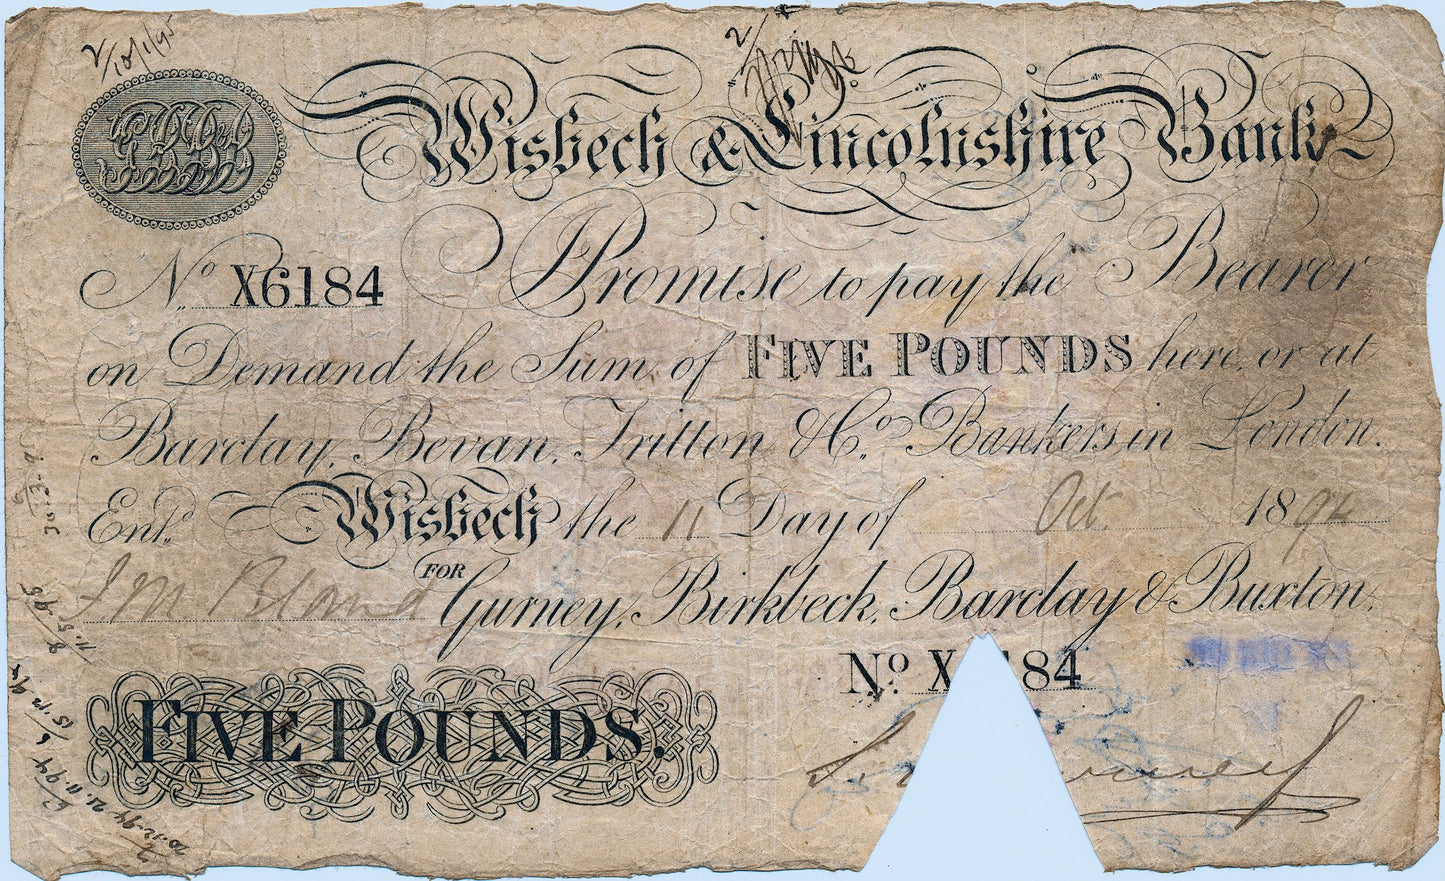 2/18/1/95
Wisbech & Lincolnshire Bank
No X6184
I Promise to pay the Bearer
on Demand the Sum of FIVE POUNDS here, or at
Barclay, Bevan, Tritton & Co. Bankers in London.
Entd. Wisbech the 11 Day of Oct. 1894
J M Bland FOR Gurney, Birkbeck, Barclay & Buxton.
No X 84
FIVE POUNDS.
11.5.95
21.11.94
20.12.94